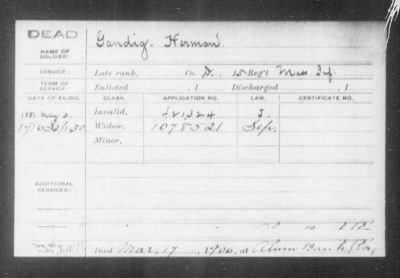 DEAD
NAME OF SOLDIER: Gandig. Herman.
SERVICE: Late rank, Co. D. 15 Reg't Mo. Inf.
TERM OF SERVICE: Enlisted , 1 Discharged , 1
DATE OF FILING. CLASS. APPLICATION NO. LAW. CERTIFICATE NO.
1881 May 2. Invalid, 421324
1916 30 Widow, 1078521
Minor,
ADDITIONAL SERVICES:
Died Mar. 17, 1900, at Alum Bank, Pa,